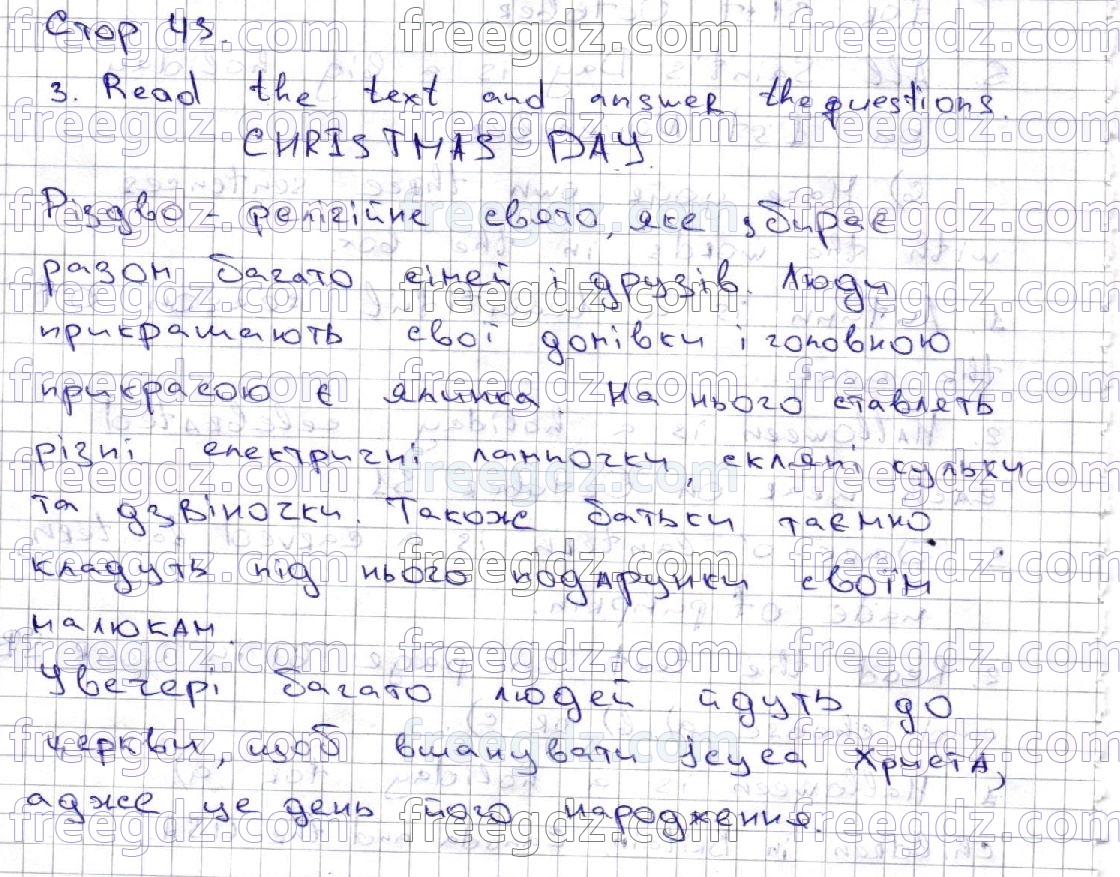 Стор 43.
3. Read the text and answer the questions.
CHRISTMAS DAY.
Різдво - релігійне свято, яке збирає
разом багато сімей і друзів. Люди
прикрашають свої домівки і головною
прикрасою є ялинка. На нього ставлять
різні електричні лампочки, скляні кульки
та дзвіночки. Також батьки таємно
кладуть під нього подарунки своїм
малюкам.
Увечері багато людей йдуть до
церкви, щоб вшанувати Ісуса Христа,
адже це день його народження.
freegdz.com